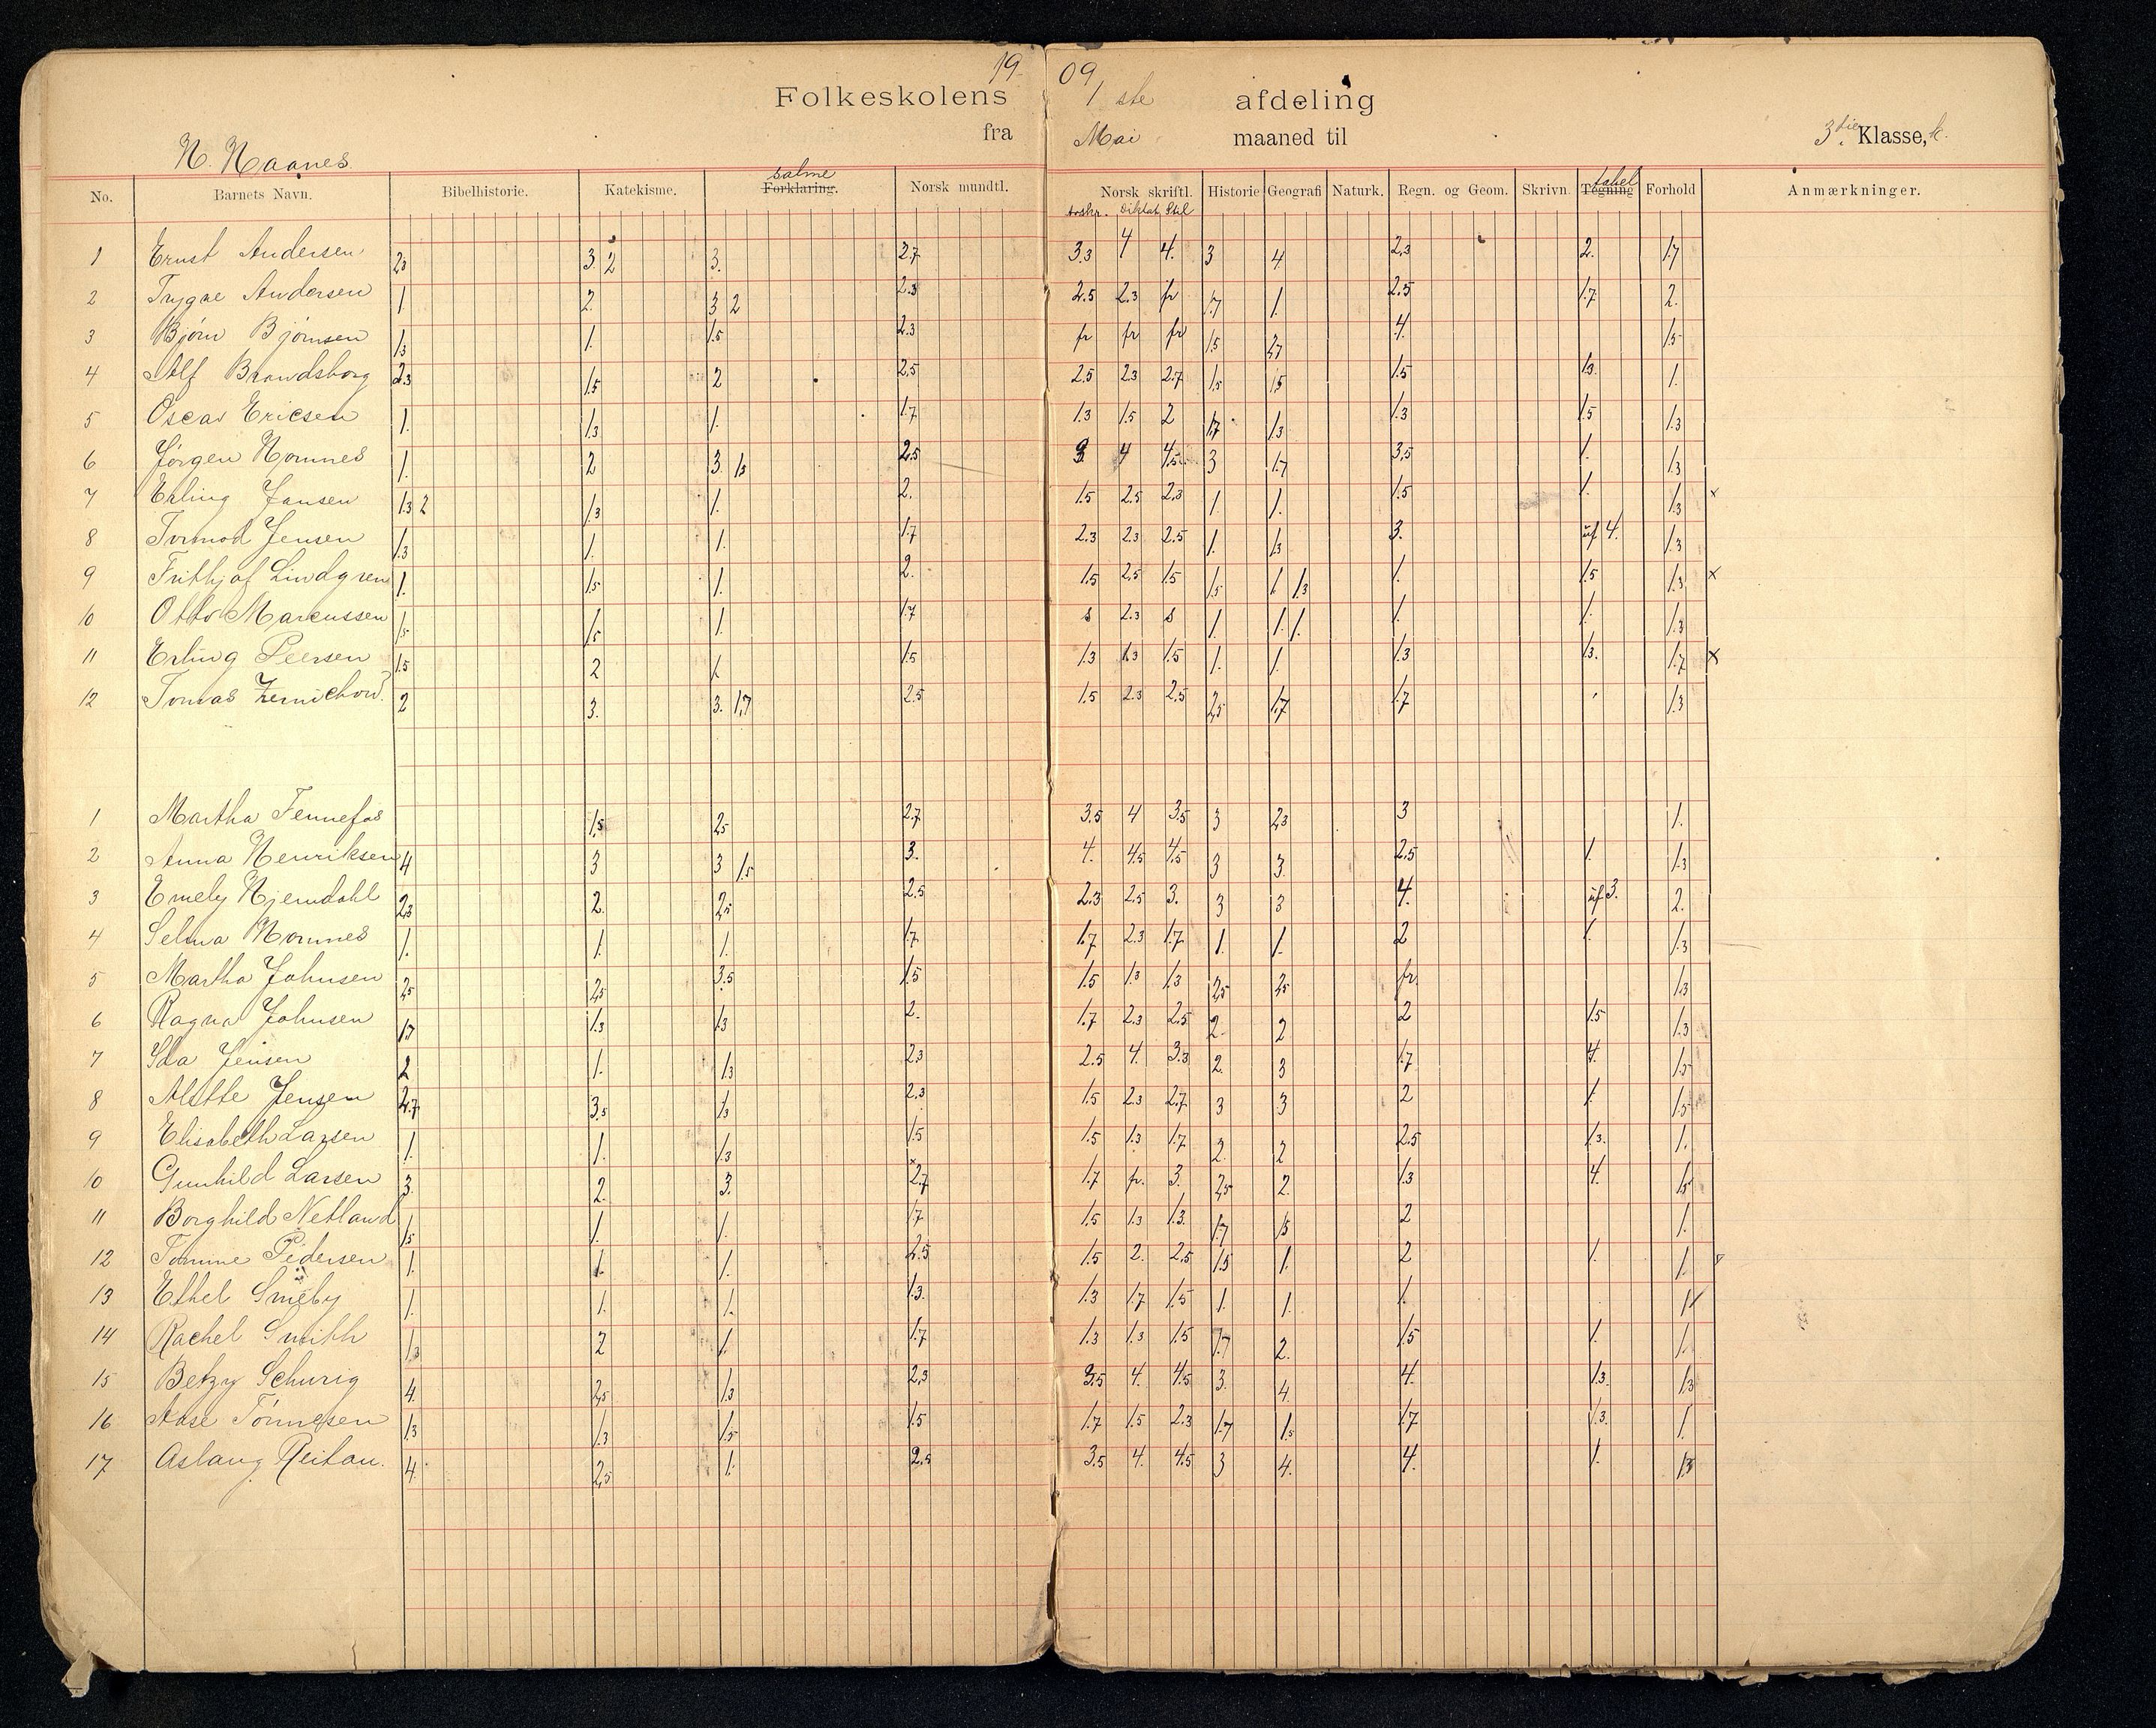 19 09
Folkeskolens 1 ste afdeling
fra Mai maaned til 3die Klasse, k.
N. Naanes.
No. Barnets Navn. Bibelhistorie. Katekisme. Forklaring. salme Norsk mundtl. Norsk skriftl. Historie Geografi Naturk. Regn. og Geom. Skrivn. Tegning tabel Forhold Anmærkninger.
Diktat Stil
1 Ernst Andersen 2.3 3. 2 3. 2.7 3.3 4 4. 3 4. 2.3 2. 1.7
2 Trygve Andersen 1. 2. 3 2 2.3 2.5 2.3 fr 1.7 1. 2.5 1.7 2.
3 Bjørn Bjørnsen 1.3 1. 1.5 2.3 fr fr fr 1.5 2.7 4. 1.5
4 Alf Brandsborg 2.3 1.5 2 2.5 2.5 2.3 2.7 1.5 1.5 1.5 1.3 1.
5 Oscar Ericsen 1. 1.3 1. 1.7 1.3 1.5 2 1.7 1.3 1.3 1.5 1.3
6 Jørgen Homnes 1. 2 3 1.5 2.5 3. 4 4.5 3 1.7 3.5 1. 1.3
7 Erling Jansen 1.3 2 1.3 1. 2. 1.5 2.5 2.3 1. 1. 1.5 1. 1.3 x
8 Tormod Jensen 1.3 1. 1. 1.7 2.3 2.3 2.5 1. 1.3 3. uf 4. 1.3
9 Frithjof Lindgren 1. 1.5 1. 2. 1.5 2.5 1.5 1.5 1. 1.3 1. 1.5 1.3 x
10 Otto Marcussen 1.5 1.5 1. 1.7 s 2.3 s 1. 1. 1. 1. 1. 1.3
11 Erling Peersen 1.5 2 1. 1.5 1.3 1.3 1.5 1. 1. 1.3 1.3. 1.7 x
12 Tomas Zernichow 2 3. 3. 1.7 2.5 1.5 2.3 2.5 2.5 1.7 1.7 1.3
1 Martha Fennefos 1.5 2.5 2.7 3.5 4 3.5 3 2.3 3 1.
2 Anna Henriksen 4 3 3 1.5 3. 4. 4.5 4.5 3 3. 2.5 1. 1.3
3 Emely Hjemdahl 2.3 2. 2.5 2.5 2.3 2.5 3. 3 3 4. uf 3. 2.
4 Selma Homnes 1. 1. 1. 1.7 1.7 2.3 1.7 1. 1. 2 1. 1.3
5 Martha Johnsen 2.5 2.5 3.5 1.5 1.5 1.3 1.3 2.5 2.5 fr. 1.3
6 Ragna Johnsen 1.7 1.3 1.3 2. 1.7 2.3 2.5 2. 2 2 1.5 1.3
7 Ida Jensen 2 1. 1.3 2.3 2.5 4. 3.3 2. 3 1.7 4. 1.5
8 Alette Jensen 2.7 3.5 1.3 2.3 1.5 2.3 2.7 3 3 2 1. 1.5
9 Elisabeth Larsen 1. 1. 1.3 1.5 1.5 1.3 1.7 2. 2 2.5 1.3. 1.
10 Gunhild Larsen 3. 2. 3. 2.7 1.7 fr. 3. 2.5 2. 1.3 4. 1.5
11 Borghild Netland 1.5 1. 1. 1.7 1.5 1.3 1.3. 1.7 1.5 2 1.
12 Tomine Pedersen 1. 1. 1. 2.5 1.5 2. 2.5 1.5 1. 2 1. 1.
13 Ethel Smeby 1. 1. 1. 1.3. 1.3 1.7 1.5 1. 1. 1. 1.
14 Rachel Smith 1.3 2 1. 1.7 1.3 1.3 1.5 1.7 2. 1.5 1. 1.
15 Betzy Schurig 4. 2.5 1.3 2.3 3.5 4. 4.5 3. 4. 4. 1.3. 1.3
16 Aase Tönnesen 1.3 1.3 1.5 1.5 1.7 1.5 2.3 1.7 1.5 1.7 1.3. 1.
17 Aslaug Reitan. 4. 2.5 1. 2.5 3.5 4. 4.5 3 4. 4. 1. 1.3